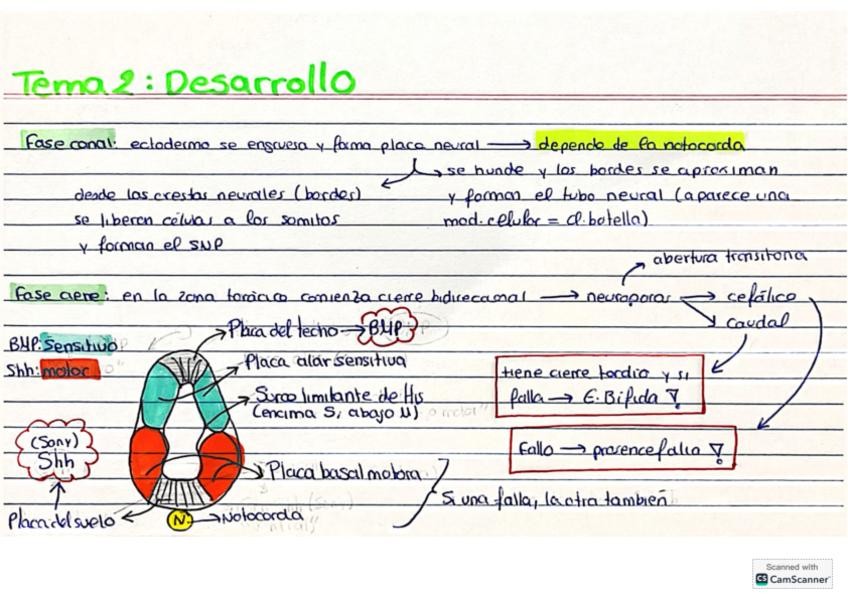 Tema 2: Desarrollo
Fase canal: ectodermo se engruesa y forma placa neural → depende de la notocorda
se hunde y los bordes se aproximan
desde las crestas neurales (bordes)
y forman el tubo neural (aparece una
se liberan células a los somitos
mod. celular = cl. botella)
y forman el SNP
abertura transitoria
Fase cierre: en la zona torácica comienza cierre bidireccional → neuroporos → cefálico
caudal
BMP: Sensitivo
Placa del techo → BMP
Shh: motor
Placa alar sensitiva
tiene cierre tardío y si
falla → E. Bífida
Surco limitante de His
(encima S, abajo M)
(Sony)
Shh
Fallo → prosencefalia
Placa basal motora
Si una falla, la otra también
Placa del suelo
N
Notocorda
Scanned with
CS CamScanner